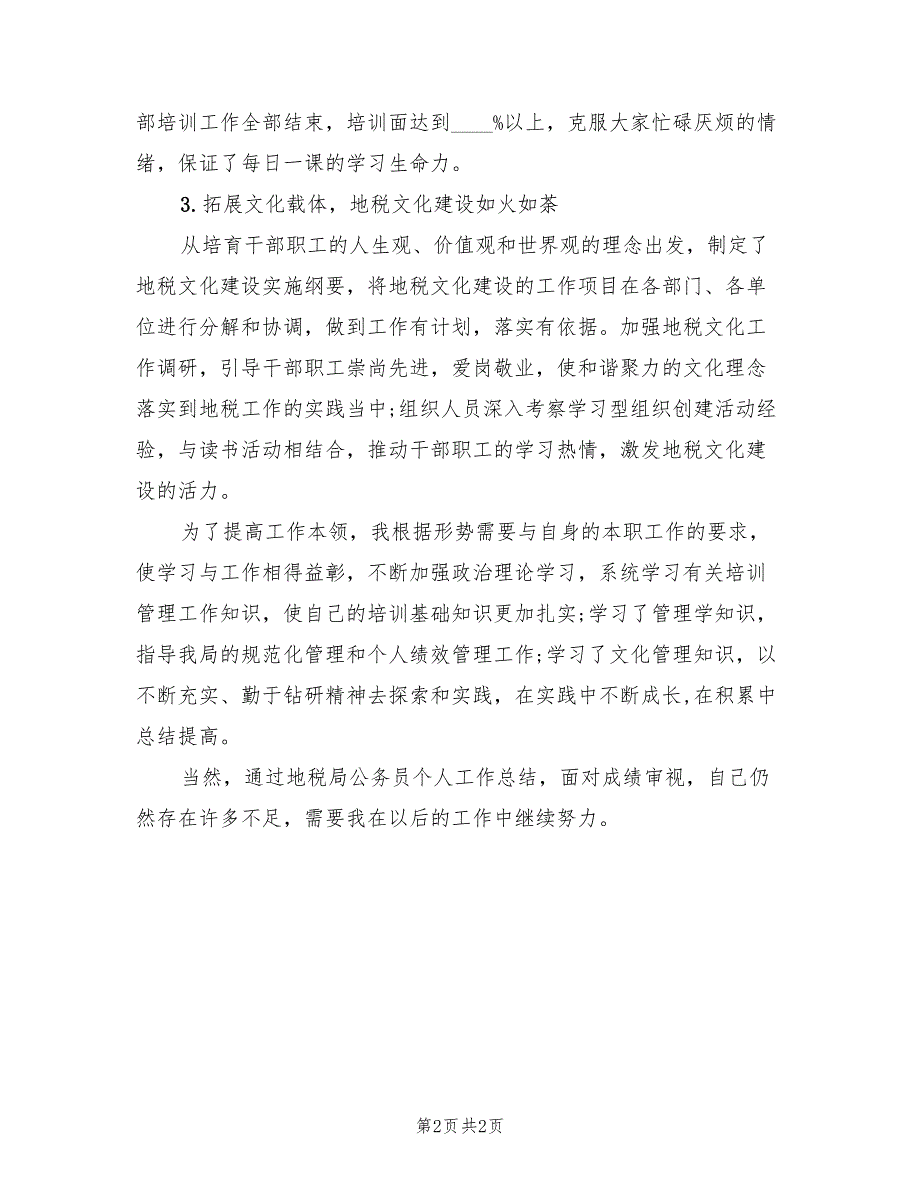 部培训工作全部结束，培训面达到____%以上，克服大家忙碌厌烦的情
绪，保证了每日一课的学习生命力。
3.拓展文化载体，地税文化建设如火如荼
从培育干部职工的人生观、价值观和世界观的理念出发，制定了
地税文化建设实施纲要，将地税文化建设的工作项目在各部门、各单
位进行分解和协调，做到工作有计划，落实有依据。加强地税文化工
作调研，引导干部职工崇尚先进，爱岗敬业，使和谐聚力的文化理念
落实到地税工作的实践当中;组织人员深入考察学习型组织创建活动经
验，与读书活动相结合，推动干部职工的学习热情，激发地税文化建
设的活力。
为了提高工作本领，我根据形势需要与自身的本职工作的要求，
使学习与工作相得益彰，不断加强政治理论学习，系统学习有关培训
管理工作知识，使自己的培训基础知识更加扎实;学习了管理学知识，
指导我局的规范化管理和个人绩效管理工作;学习了文化管理知识，以
不断充实、勤于钻研精神去探索和实践，在实践中不断成长,在积累中
总结提高。
当然，通过地税局公务员个人工作总结，面对成绩审视，自己仍
然存在许多不足，需要我在以后的工作中继续努力。
第2页 共2页